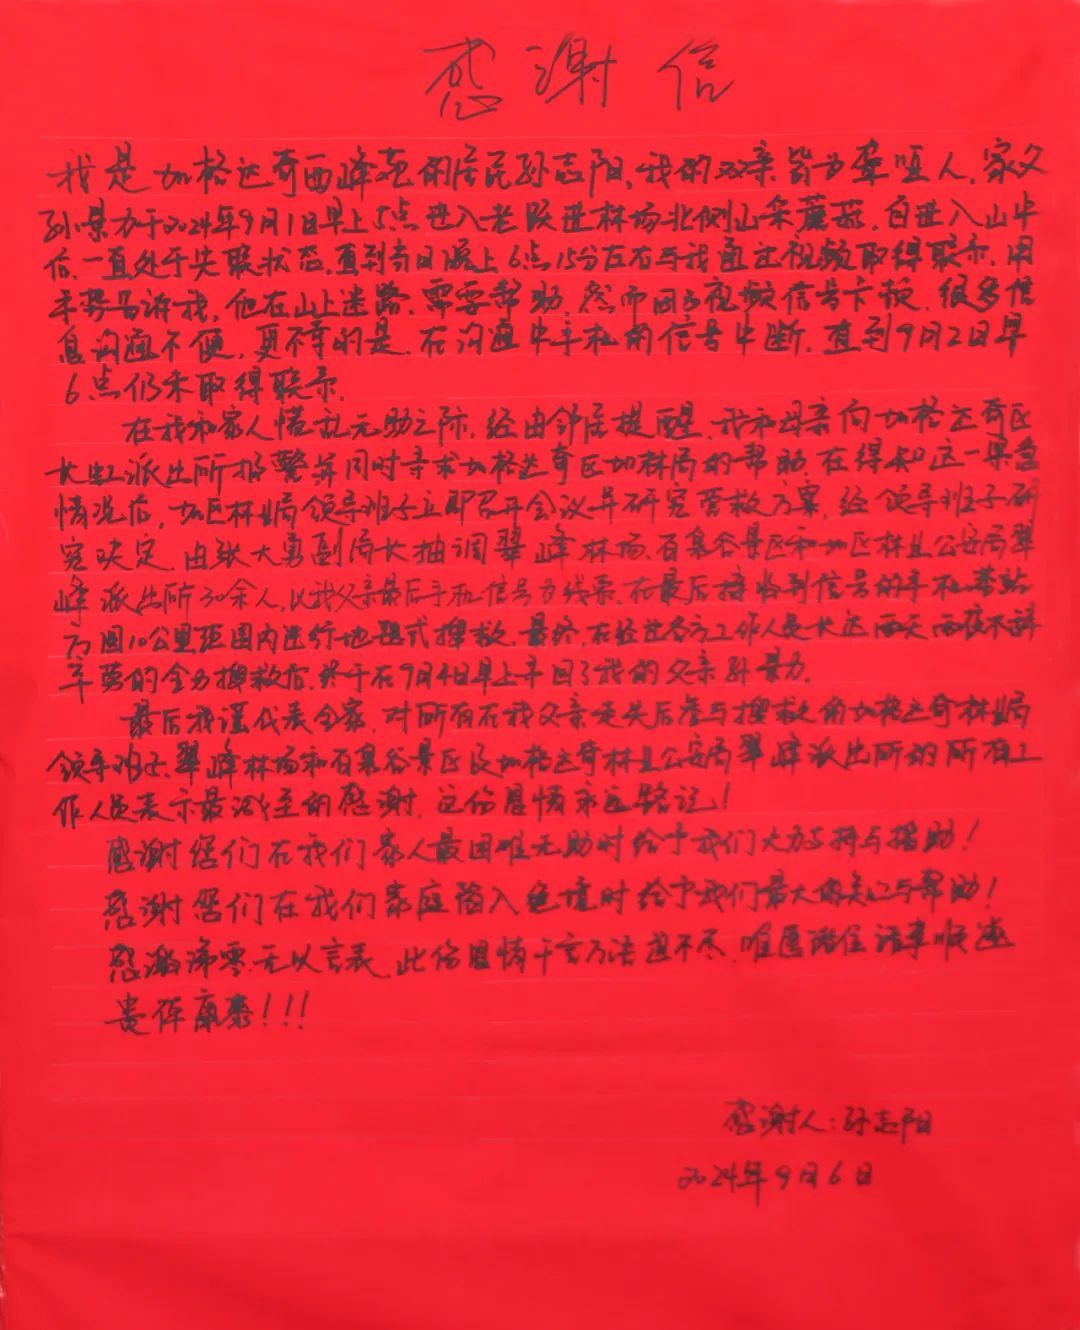 感谢信
我是加格达奇西峰苑的居民孙志阳，我的双亲皆为聋哑人，家父
孙景力于2024年9月1日早上5点进入老跃进林场北侧山采蘑菇，自进入山中
后，一直处于失联状态，直到当日晚上6点15分左右与我通过视频取得联系，用
手势告诉我，他在山上迷路，需要帮助，然而因为视频信号卡顿，很多信
息沟通不便，更不幸的是，在沟通中手机的信号中断，直到9月2日早
6点仍未取得联系。
在我和家人慌乱无助之际，经由邻居提醒，我和母亲向加格达奇区
长虹派出所报警并同时寻求加格达奇区加林局的帮助，在得知这一紧急
情况后，加区林业局领导班子立即召开会议并研究营救方案，经领导班子研
究决定，由张大勇副局长抽调翠峰林场、百泉谷景区和加区林业公安局翠
峰派出所30余人，以我父亲最后手机信号为线索，在最后接收到信号的手机基站
方圆10公里范围内进行地毯式搜救，最终，在经过各方工作人员长达两天两夜不辞
辛劳的全力搜救后，终于在9月4日早上寻回了我的父亲孙景力。
最后我谨代表全家，对所有在我父亲走失后参与搜救的加格达奇林业局
领导班子、翠峰林场和百泉谷景区及加格达奇林业公安局翠峰派出所的所有工
作人员表示最诚至的感谢，这份恩情永远铭记！
感谢您们在我们家人最困难无助时给予我们大力支持与援助！
感谢您们在我们家庭陷入绝境时给予我们最大的关心与帮助！
感激涕零，无以言表，此份恩情千言万语道不尽，唯愿诸位诸事顺遂
贵体康泰！！！
感谢人：孙志阳
2024年9月6日